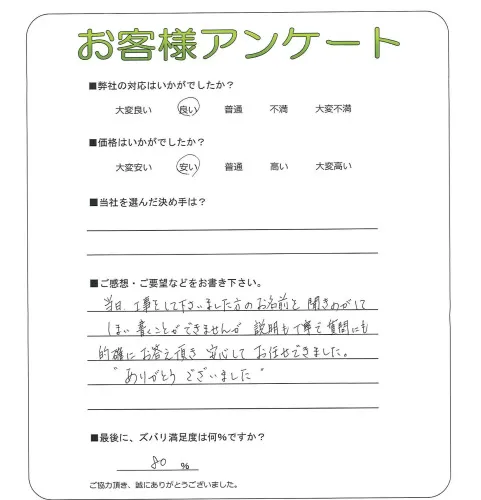 お客様アンケート
■弊社の対応はいかがでしたか？
大変良い 良い 普通 不満 大変不満
■価格はいかがでしたか？
大変安い 安い 普通 高い 大変高い
■当社を選んだ決め手は？
■ご感想・ご要望などをお書き下さい。
当日、工事をして下さいました方のお名前を 聞きのがして
しまい 書くことができませんが 説明も丁寧で 質問にも
的確に お答え頂き 安心して お任せできました。
"ありがとう ございました"
■最後に、ズバリ満足度は何%ですか？
80 %
ご協力頂き、誠にありがとうございました。